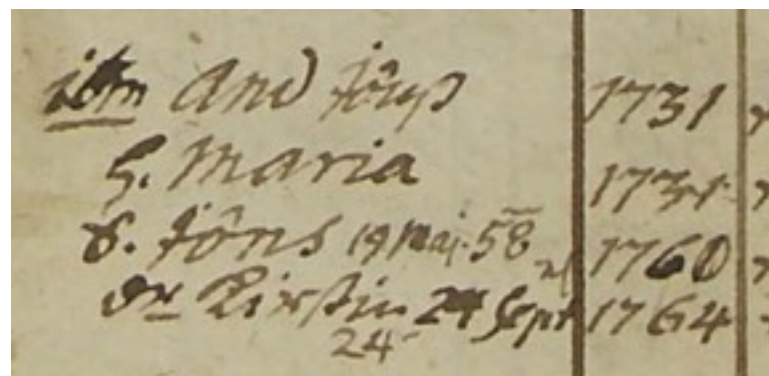 ibm And Jönß 1731
H. Maria 1731
S. Jöns 19 Maj. 58 1760
Dr Kirstin 24 Sept 1764
24